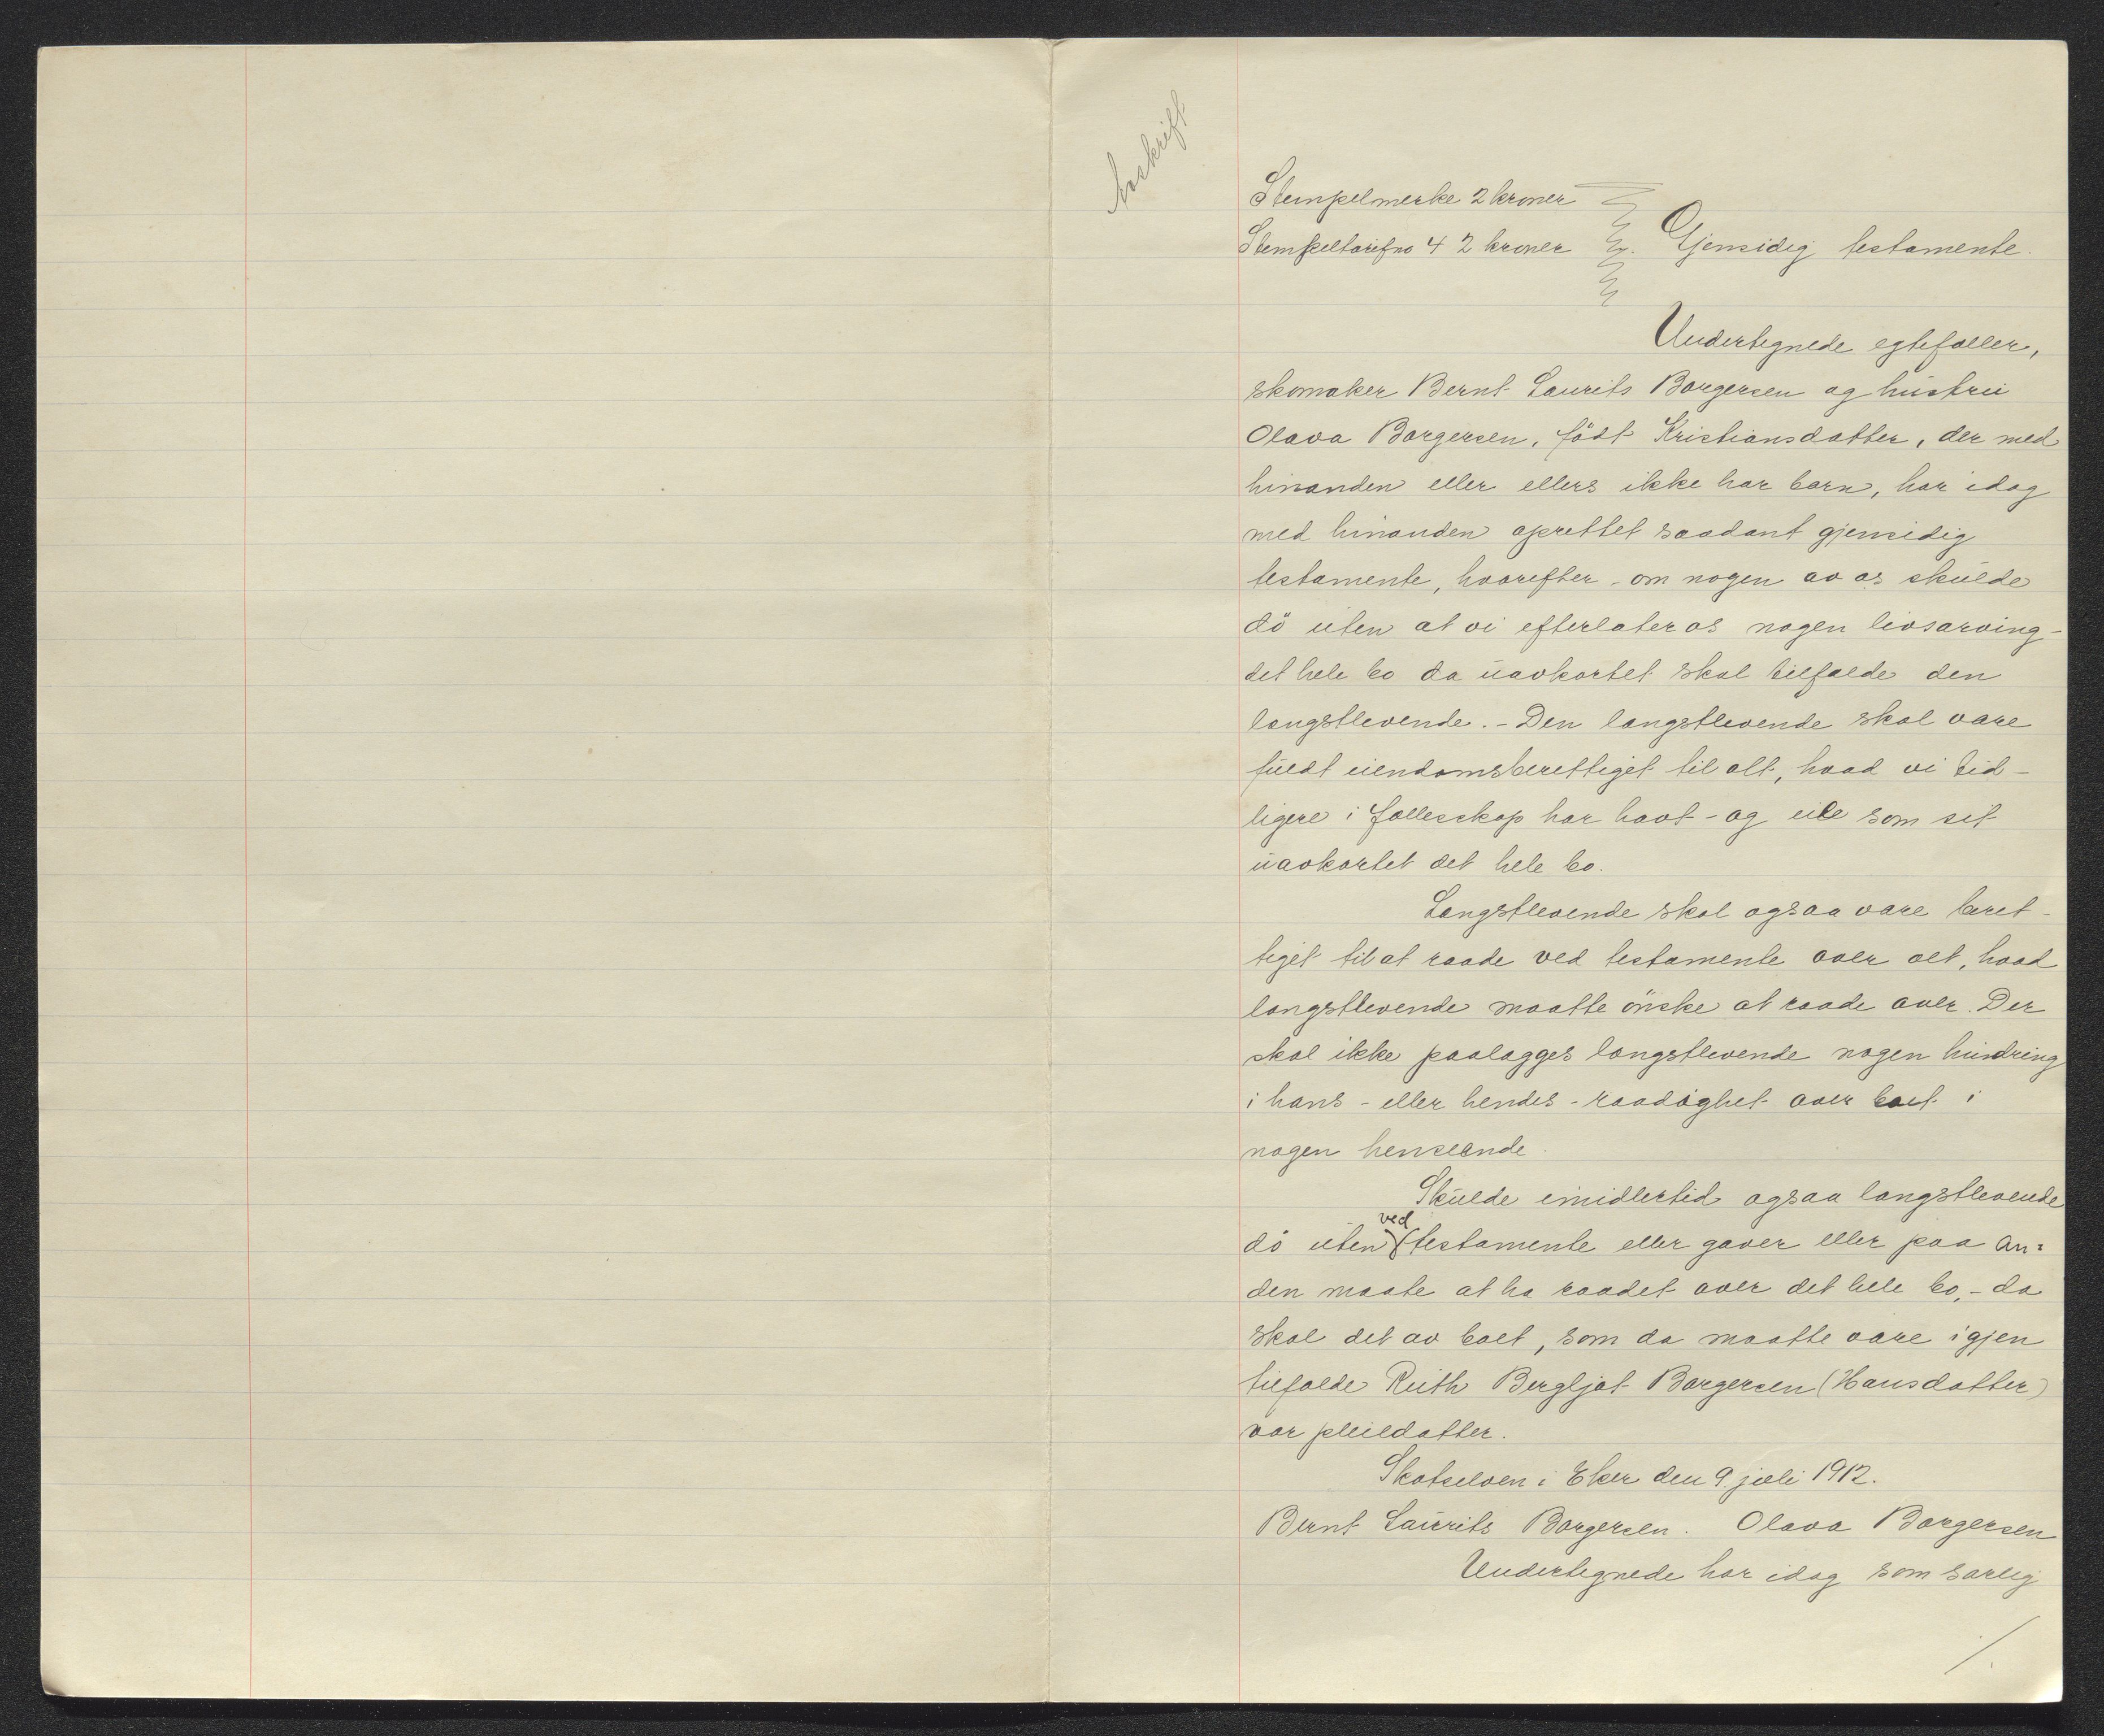 Avskrift
Stempelmerke 2 kroner
Stempeltarifno 4 2 kroner Gjensidig testamente.
Undertegnede egtefæller,
skomaker Bernt Laurits Borgersen og hustru
Olava Borgersen, født Kristiansdatter, der med
hinanden eller ellers ikke har barn, har idag
med hinanden oprettet saadant gjensidig
testamente, hvorefter - om nogen av os skulde
dö uten at vi efterlater os nogen livsarving -
det hele bo da uavkortet skal tilfalde den
længstlevende. - Den længstlevende skal være
fuldt eiendomsberettiget til alt, hvad vi tid-
ligere i fællesskap har havt - og eie som sit
uavkortet det hele bo.
Længstlevende skal ogsaa være beret-
tiget til at raade ved testamente over alt, hvad
længstlevende maatte önske at raade over. Der
skal ikke paalægges længstlevende nogen hindring
i hans - eller hendes - raadighet over boet i
nogen henseende.
Skulde imidlertid ogsaa længstlevende
dö uten ved testamente eller gaver eller paa an=
den maate at ha raadet over det hele bo, - da
skal det av boet, som da maatte være igjen
tilfalde Ruth Bergljot Borgersen (Hansdatter)
vor pleiedatter.
Skotselven i Eker den 9. juli 1912.
Bernt Laurits Borgersen. Olava Borgersen
Undertegnede har idag som særlig
/.